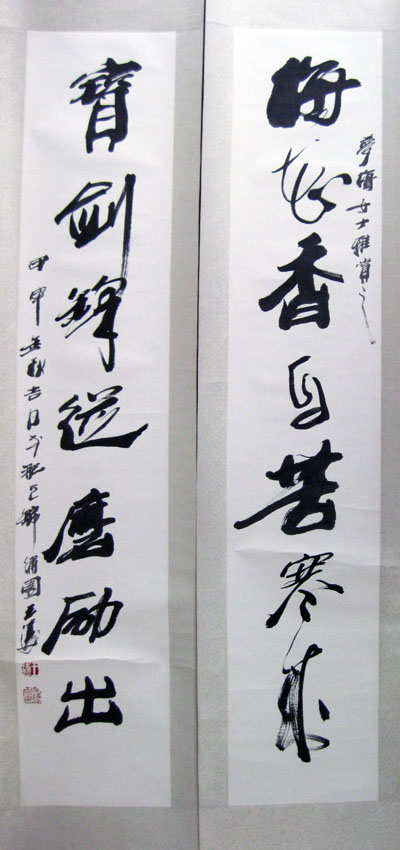 夢梅女士雅賞之
梅花香自苦寒來
寶劍鋒從磨励出
甲申年秋吉日于